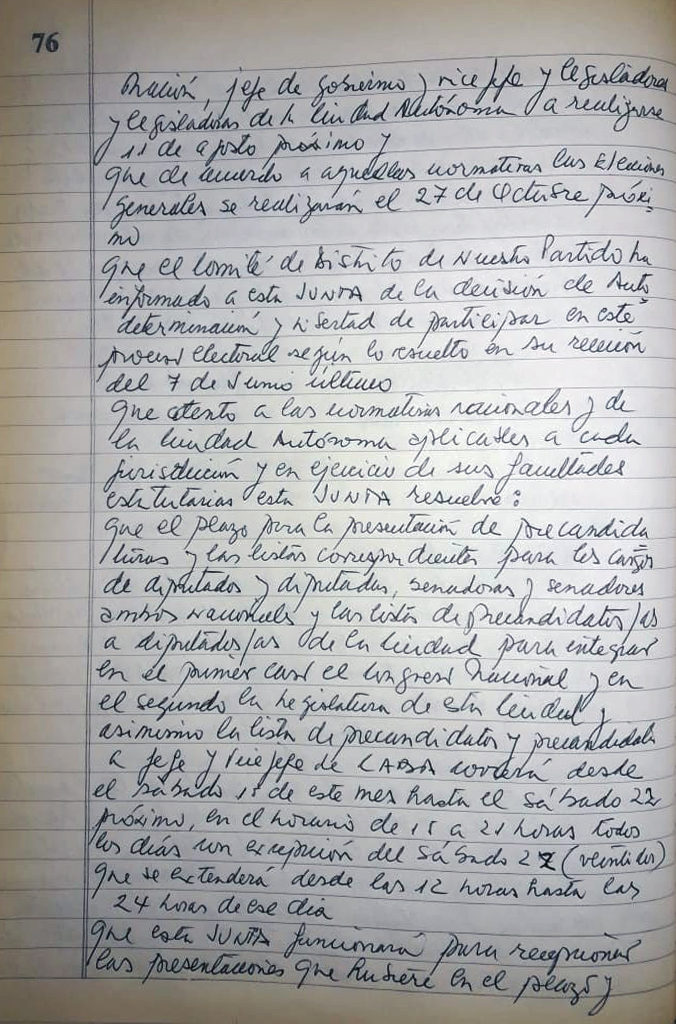 76
Nación, jefe de gobierno y vice jefe y legisladores
y legisladoras de la Ciudad Autónoma a realizarse
11 de agosto próximo y
que de acuerdo a aquellas normativas las Elecciones
generales se realizarán el 27 de Octubre próxi
mo
que el Comité de Distrito de Nuestro Partido ha
informado a esta JUNTA de la decisión de Auto
determinación y libertad de participar en este
proceso electoral según lo resuelto en su reunión
del 7 de Junio último
que atento a las normativas nacionales y de
la Ciudad Autónoma aplicables a cada
jurisdicción y en ejercicio de sus facultades
estatutarias esta JUNTA resuelve:
que el plazo para la presentación de precandida
turas y las listas correspondientes para los cargos
de diputados y diputadas, senadoras y senadores
ambos nacionales y las listas de precandidatos/as
a diputados/as de la Ciudad para integrar
en el primer caso el Congreso Nacional y en
el segundo la Legislatura de esta Ciudad y
asimismo la lista de precandidatos y precandidatas
a Jefe y Vice jefe de CABA correrá desde
el sábado 15 de este mes hasta el sábado 22
próximo, en el horario de 15 a 21 horas todos
los días con excepción del sábado 22 (veintidos)
que se extenderá desde las 12 horas hasta las
24 horas de ese día
que esta JUNTA funcionará para recepcionar
las presentaciones que hubiere en el plazo y